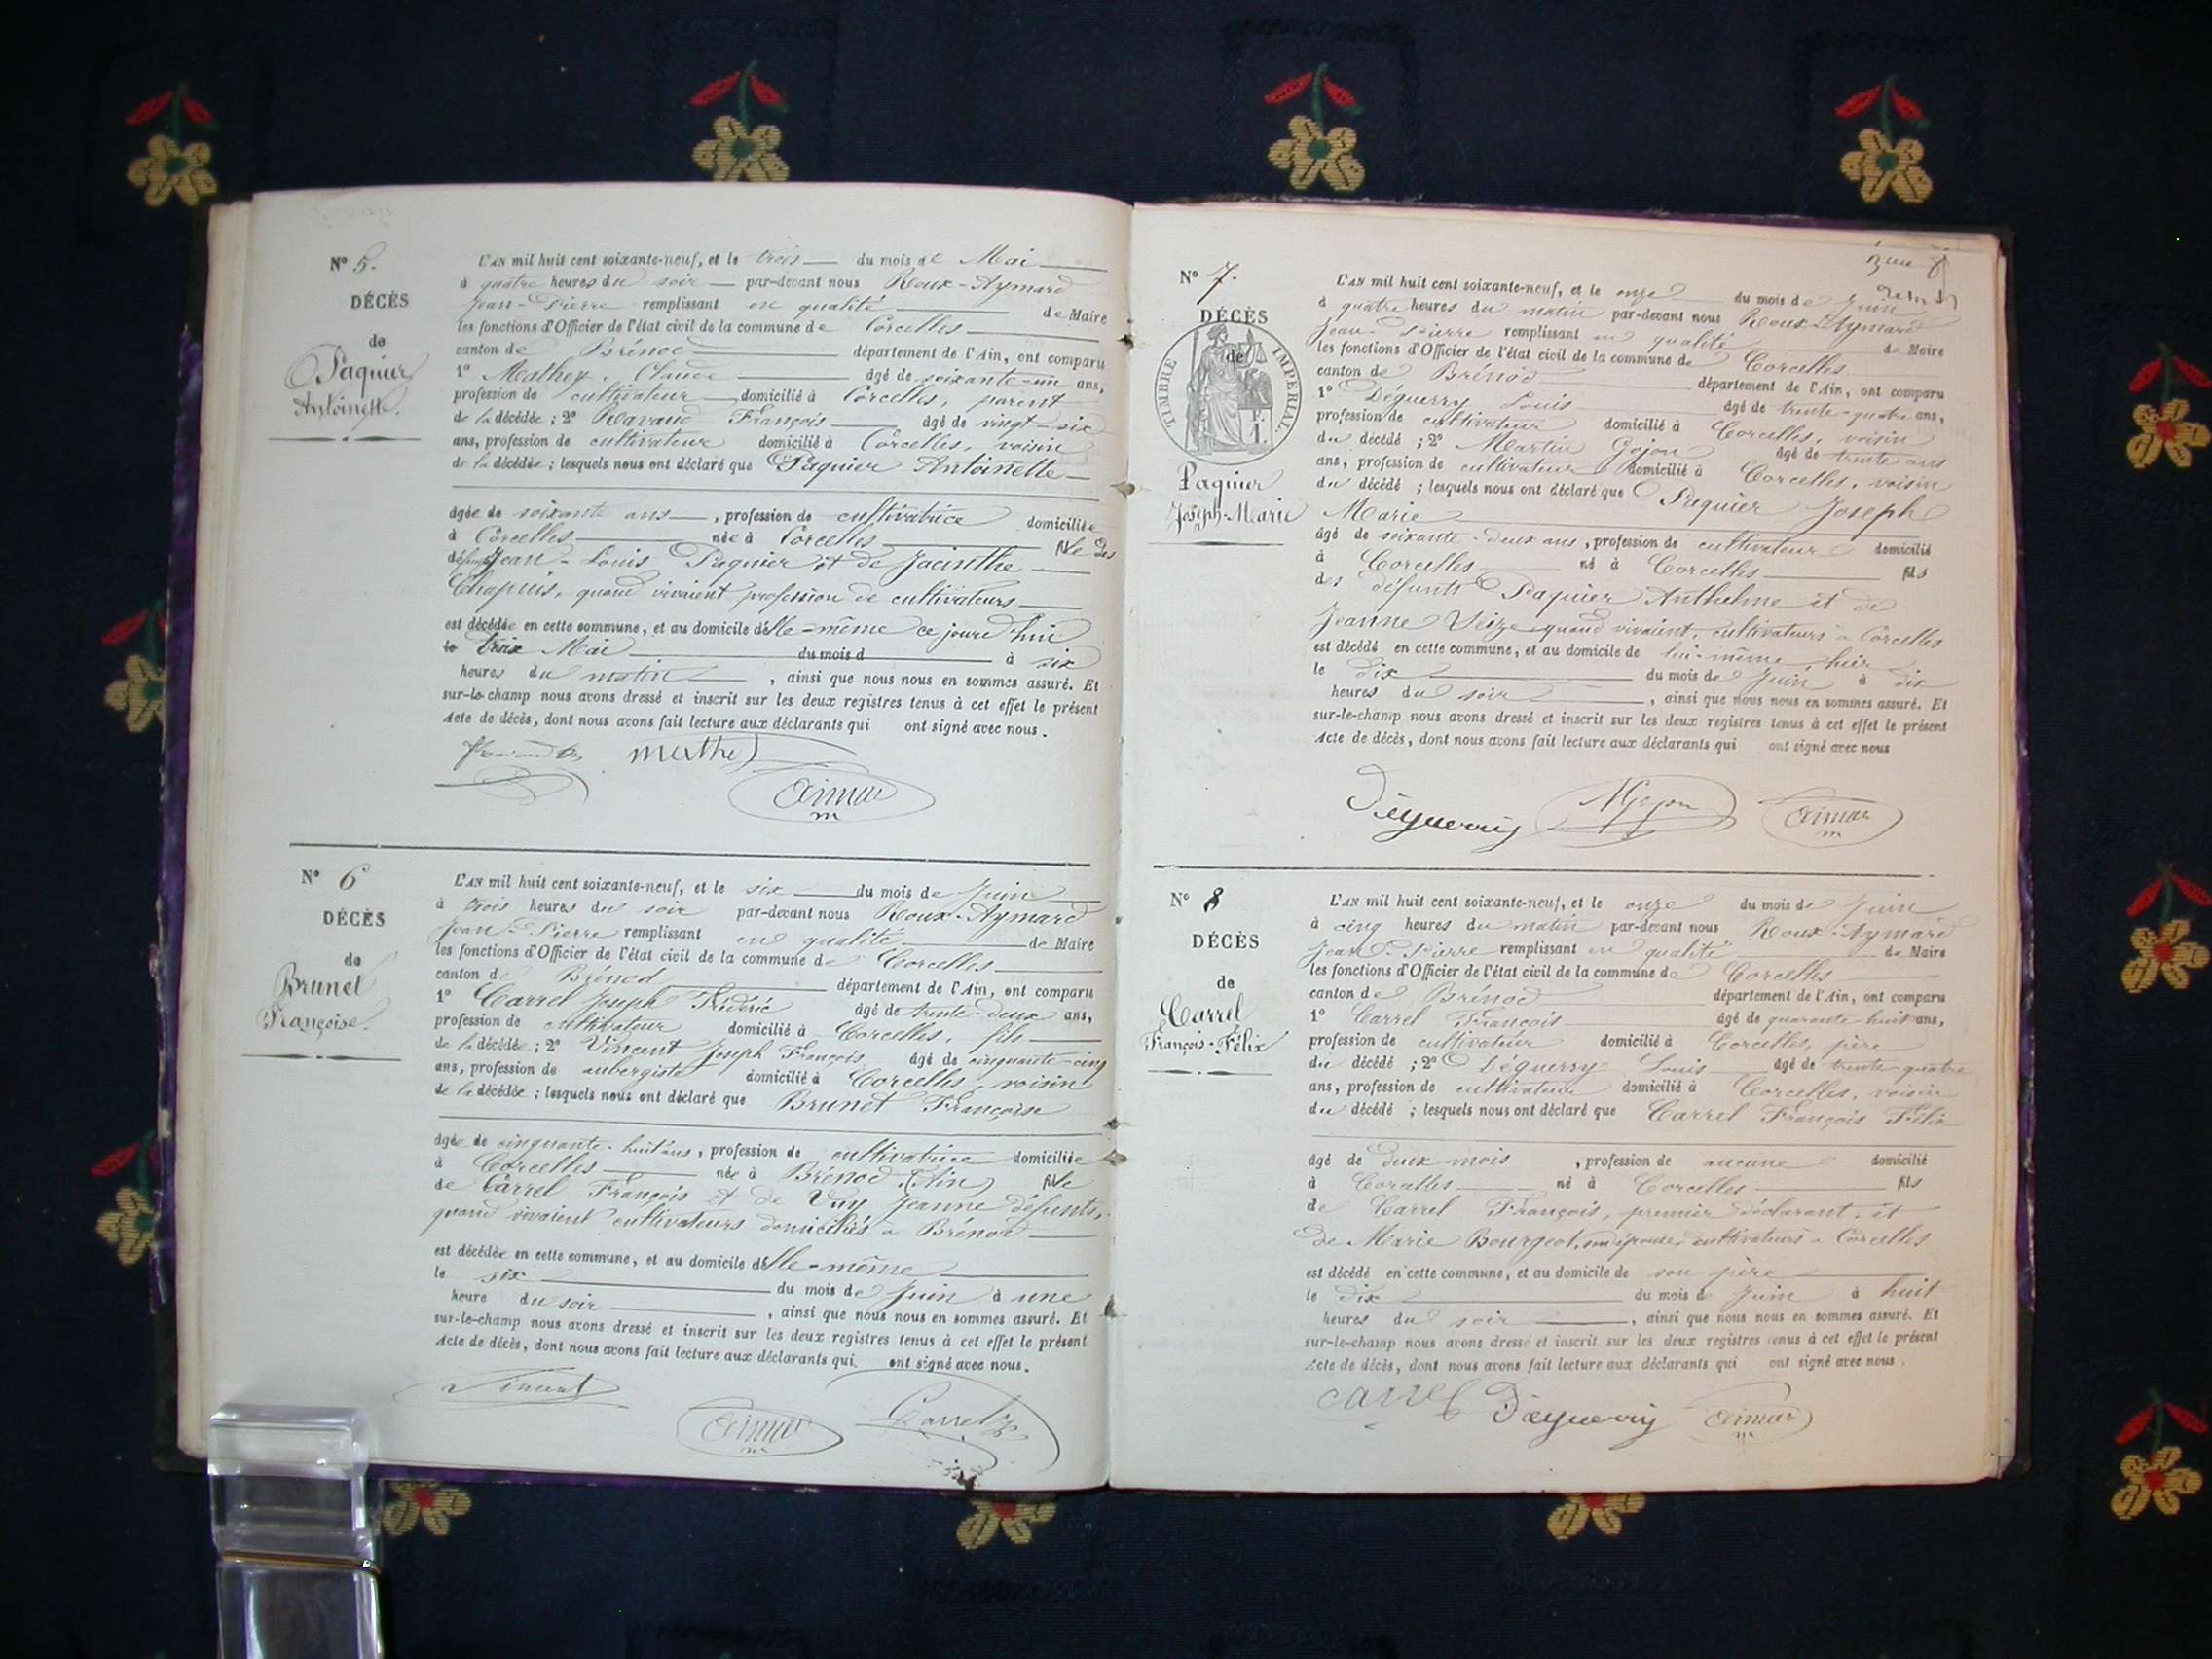 N° 5.
DÉCÈS
de
Paquier
Antoinette.
L'AN mil huit cent soixante-neuf, et le trois du mois de Mai
à quatre heures du soir par-devant nous Roux-Aymard
Jean-Pierre remplissant en qualité de Maire
les fonctions d'Officier de l'état civil de la commune de Corcelles
canton de Brénod département de l'Ain, ont comparu
1° Mathey Claude âgé de soixante-un ans,
profession de cultivateur domicilié à Corcelles, parent
de la décédée ; 2° Ravaud François âgé de vingt-six
ans, profession de cultivateur domicilié à Corcelles, voisin
de la décédée ; lesquels nous ont déclaré que Paquier Antoinette
âgée de soixante ans, profession de cultivatrice domiciliée
à Corcelles née à Corcelles fille des
défunts Jean-Louis Paquier et de Jacinthe
Chapuis, quand vivaient profession de cultivateurs
est décédée en cette commune, et au domicile d'elle-même ce jourd'hui
le trois Mai du mois d à six
heures du matin, ainsi que nous nous en sommes assuré. Et
sur-le-champ nous avons dressé et inscrit sur les deux registres tenus à cet effet le présent
Acte de décès, dont nous avons fait lecture aux déclarants qui ont signé avec nous.
mathe
Aimar
m
N° 6
DÉCÈS
de
Brunet
Françoise.
L'AN mil huit cent soixante-neuf, et le six du mois de Juin
à trois heures du soir par-devant nous Roux-Aymard
Jean-Pierre remplissant en qualité de Maire
les fonctions d'Officier de l'état civil de la commune de Corcelles
canton de Brénod département de l'Ain, ont comparu
1° Carrel Joseph Frédéric âgé de trente-deux ans,
profession de cultivateur domicilié à Corcelles, fils
de la décédée ; 2° Vincent Joseph François âgé de cinquante-cinq
ans, profession de aubergiste domicilié à Corcelles, voisin
de la décédée ; lesquels nous ont déclaré que Brunet Françoise
âgée de cinquante-huit ans, profession de cultivatrice domiciliée
à Corcelles née à Brénod (Ain) fille
de Carrel François et de Vuy Jeanne défunts,
quand vivaient cultivateurs domiciliés à Brénod
est décédée en cette commune, et au domicile d'elle-même
le six du mois de Juin à une
heure du soir, ainsi que nous nous en sommes assuré. Et
sur-le-champ nous avons dressé et inscrit sur les deux registres tenus à cet effet le présent
Acte de décès, dont nous avons fait lecture aux déclarants qui ont signé avec nous.
Vincent
Aimar
m
Carrel
N° 7.
DÉCÈS
de
TIMBRE IMPÉRIAL.
1 F.
Paquier
Joseph-Marie
L'AN mil huit cent soixante-neuf, et le onze du mois de Juin
à quatre heures du matin par-devant nous Roux-Aymard
Jean-Pierre remplissant en qualité de Maire
les fonctions d'Officier de l'état civil de la commune de Corcelles
canton de Brénod département de l'Ain, ont comparu
1° Déguerry Louis âgé de trente-quatre ans,
profession de cultivateur domicilié à Corcelles, voisin
du décédé ; 2° Martin Gojon âgé de trente ans
ans, profession de cultivateur domicilié à Corcelles, voisin
du décédé ; lesquels nous ont déclaré que Paquier Joseph
Marie
âgé de soixante-deux ans, profession de cultivateur domicilié
à Corcelles né à Corcelles fils
des défunts Paquier Anthelme et de
Jeanne quand vivaient, cultivateurs à Corcelles
est décédé en cette commune, et au domicile de lui-même, hier
le dix du mois de Juin à dix
heures du soir, ainsi que nous nous en sommes assuré. Et
sur-le-champ nous avons dressé et inscrit sur les deux registres tenus à cet effet le présent
Acte de décès, dont nous avons fait lecture aux déclarants qui ont signé avec nous
Déguerry MGojon Aimar
m
N° 8
DÉCÈS
de
Carrel
François-Félix
L'AN mil huit cent soixante-neuf, et le onze du mois de Juin
à cinq heures du matin par-devant nous Roux-Aymard
Jean-Pierre remplissant en qualité de Maire
les fonctions d'Officier de l'état civil de la commune de Corcelles
canton de Brénod département de l'Ain, ont comparu
1° Carrel François âgé de quarante-huit ans,
profession de cultivateur domicilié à Corcelles, père
du décédé ; 2° Déguerry Louis âgé de trente-quatre
ans, profession de cultivateur domicilié à Corcelles, voisin
du décédé ; lesquels nous ont déclaré que Carrel François Félix
âgé de deux mois, profession de aucune domicilié
à Corcelles né à Corcelles fils
de Carrel François, premier déclarant, et
de Marie Bourgeot, son épouse, cultivateurs à Corcelles
est décédé en cette commune, et au domicile de son père
le dix du mois de Juin à huit
heures du soir, ainsi que nous nous en sommes assuré. Et
sur-le-champ nous avons dressé et inscrit sur les deux registres tenus à cet effet le présent
Acte de décès, dont nous avons fait lecture aux déclarants qui ont signé avec nous.
carrel Déguerry Aimar
m